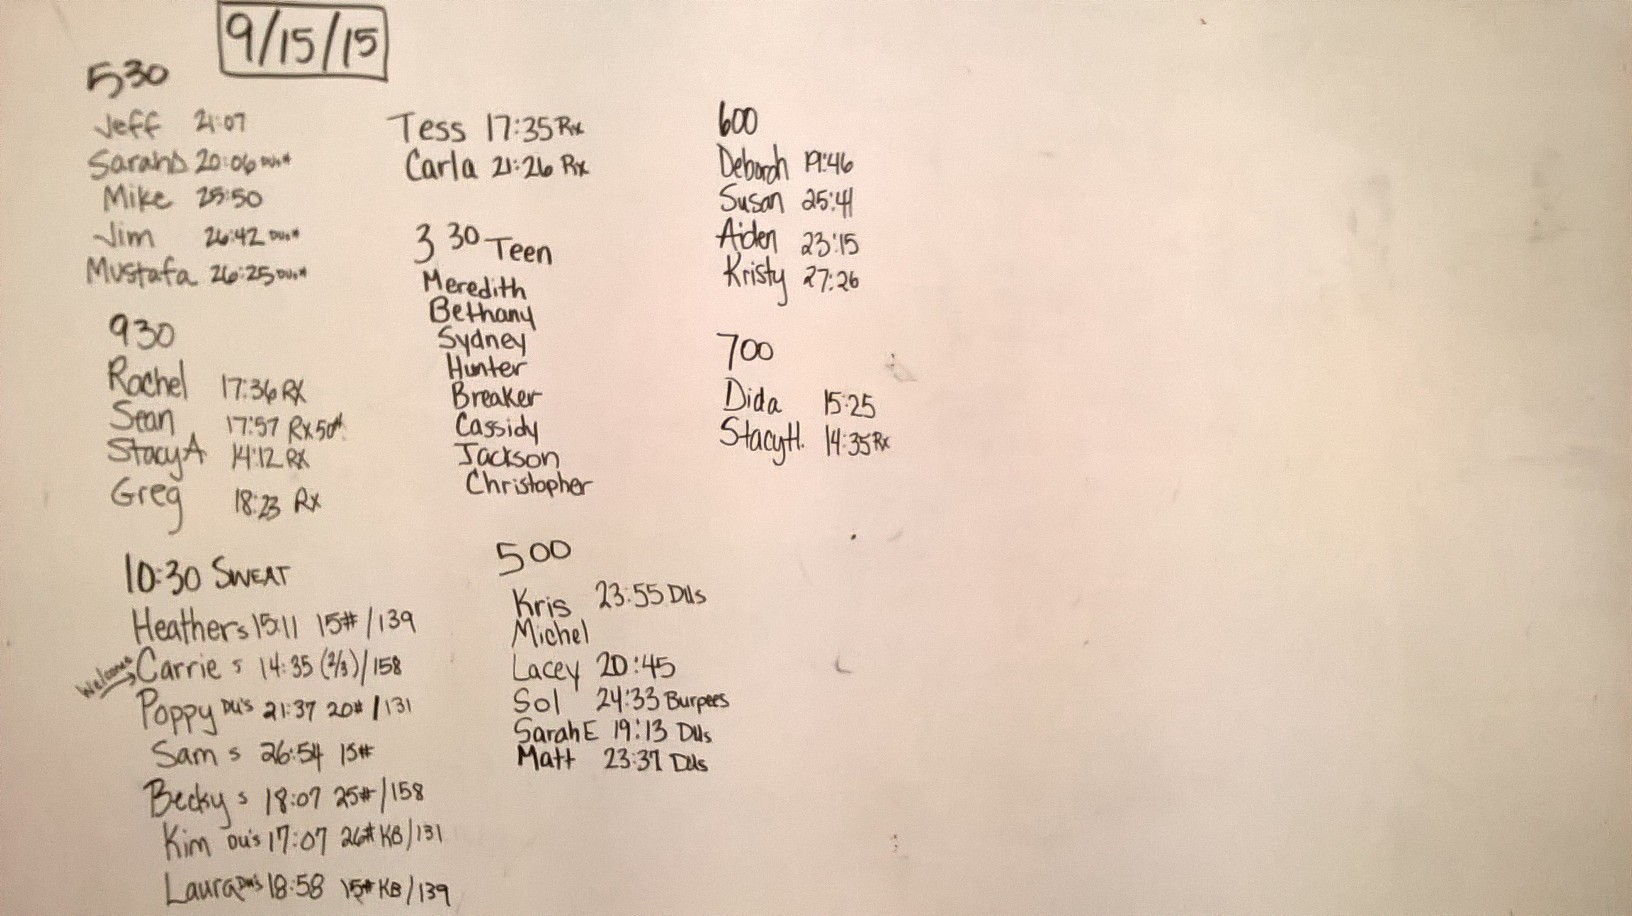 9/15/15
530
Jeff 21:07
Sarah S 20:06
Mike 25:50
Jim 26:42
Mustafa 26:25
930
Rachel 17:36 RX
Sean 17:57 Rx 50#
Stacy A 14:12 RX
Greg 18:23 Rx
10:30 SWEAT
Heather s 15:11 15# /139
Welcome Carrie s 14:35 (2/3)/158
Poppy DU's 21:37 20# /131
Sam s 26:54 15#
Becky s 18:07 25#/158
Kim DU's 17:07 26# KB/131
Laura DU's 18:58 15# KB/139
Tess 17:35 Rx
Carla 21:26 Rx
3 30 Teen
Meredith
Bethany
Sydney
Hunter
Breaker
Cassidy
Jackson
Christopher
500
Kris 23:55 DUs
Michel
Lacey 20:45
Sol 24:33 Burpees
Sarah E 19:13 DUs
Matt 23:37 DUs
600
Deborah 19:46
Susan 25:41
Aiden 23:15
Kristy 27:26
700
Dida 15:25
Stacy H. 14:35 Rx